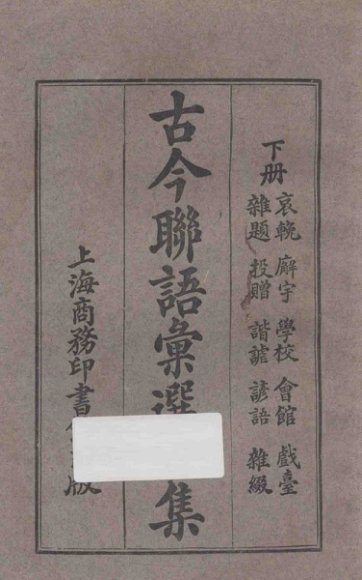 下册
哀輓 廨宇 學校 會館 戲臺
雜題 投贈 諧謔 諺語 雜綴
古今聯語彙選集
上海商務印書版